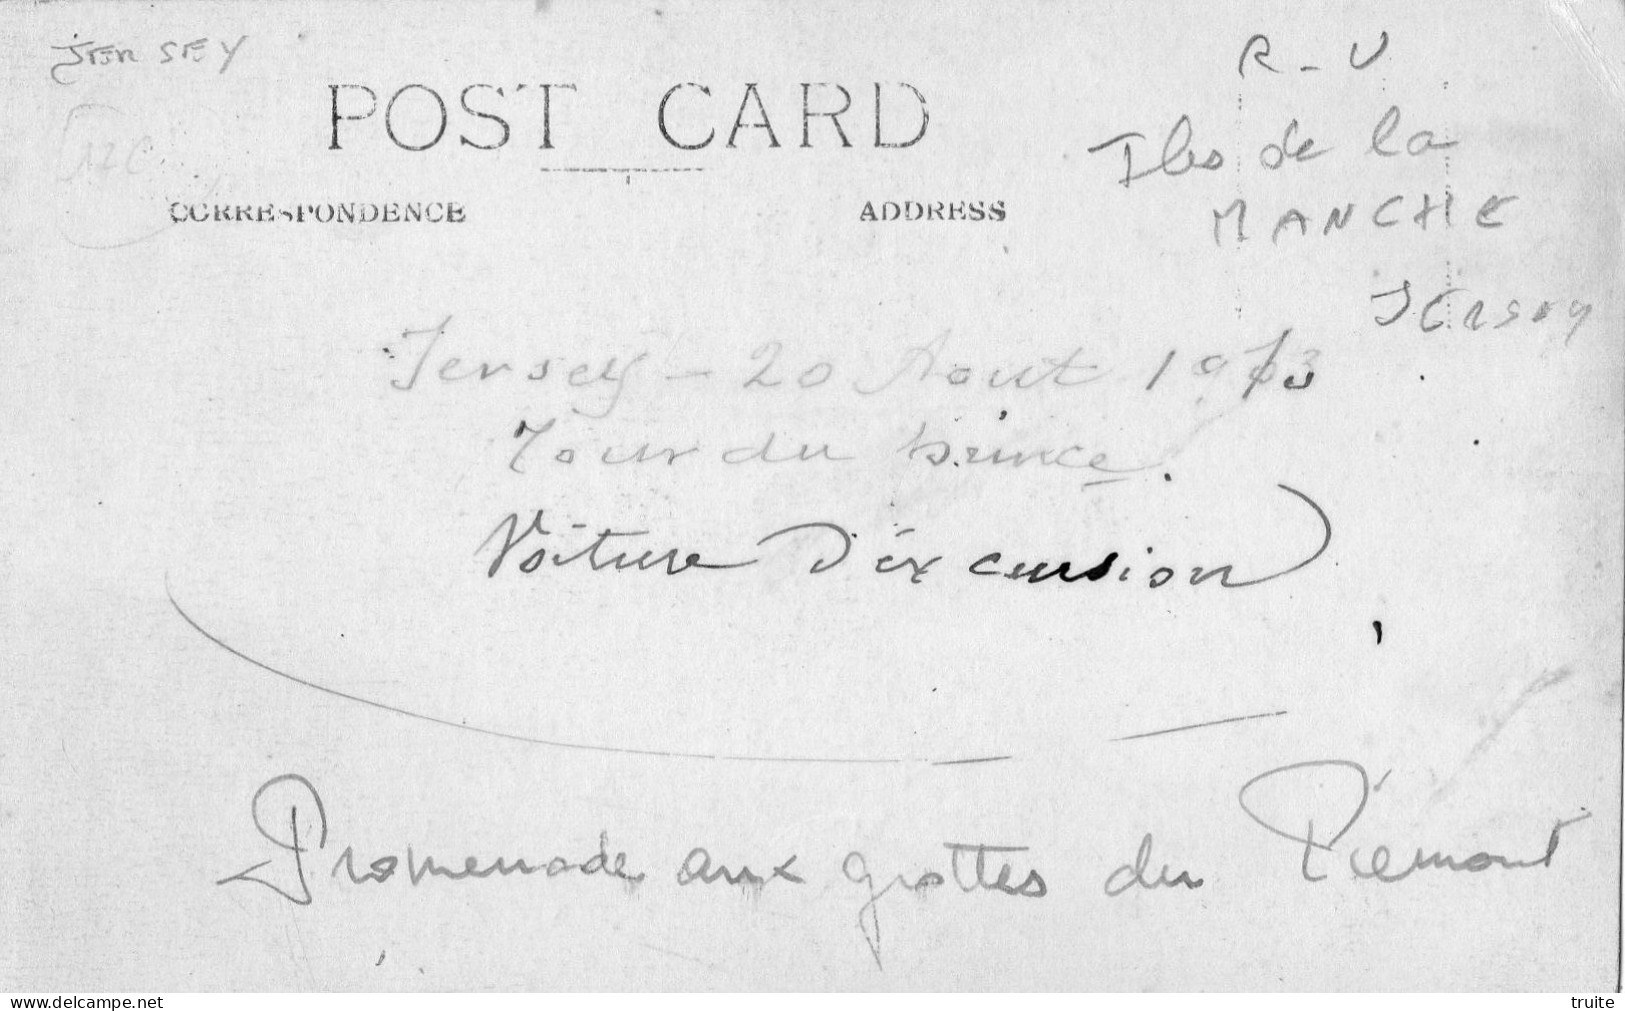 JERSEY
R-U
POST CARD
Iles de la
MANCHE
CORRESPONDENCE
ADDRESS
Jersey
Jersey - 20 Aout 1913
Tour du prince.
Voiture d'excursion
Promenade aux grottes du Piémont
www.delcampe.net
truite